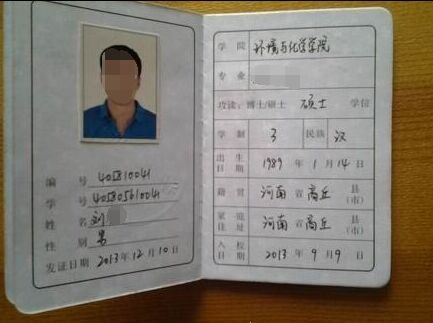 编 号 405810041
学 号 405805610041
姓 名 刘
性 别 男
发证日期 2013年12月10日
学 院 环境与化学学院
专 业
攻读：博士/硕士 硕士 学位
学 制 3 民族 汉
出生日期 1989年1月14日
籍 贯 河南省商丘县(市)
家庭住址 河南省商丘县(市)
入校日期 2013年9月9日